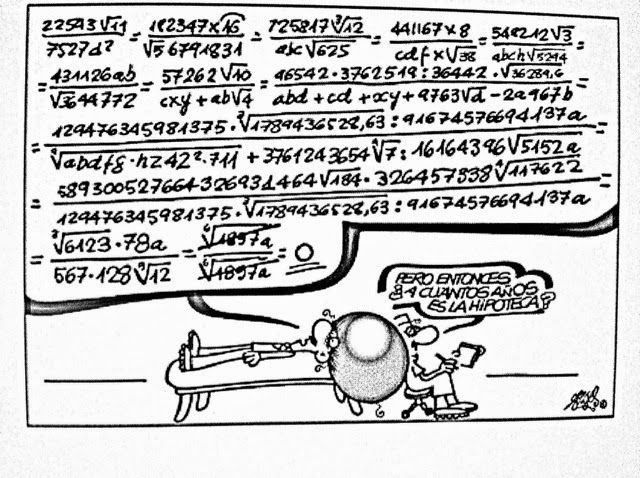 22543√11/7527d² = 182347×√16/√5 6791831 = 725817∛12/abc√625 = 441167×8/cdf×√38 = 548212√3/abch√5294
= 431126ab/√3644772 = 57262√10/cxy+ab√4 = 46542·3762519:36442·√36289,6/abd+cd+xy+9763√d-2a967b =
= 129476345981375·∛1789436528,63:91674576694137a/√abdfg·hz42²·711+3761243654√7:16164396√5152a =
= 58930052766432693d464√184·326457338√117622/129476345981375·∛1789436528,63:91674576694137a =
= ∛6123·78a/567·128∛12 = √1897a/√1897a = 0
PERO ENTONCES
¿A CUANTOS AÑOS
ES LA HIPOTECA?